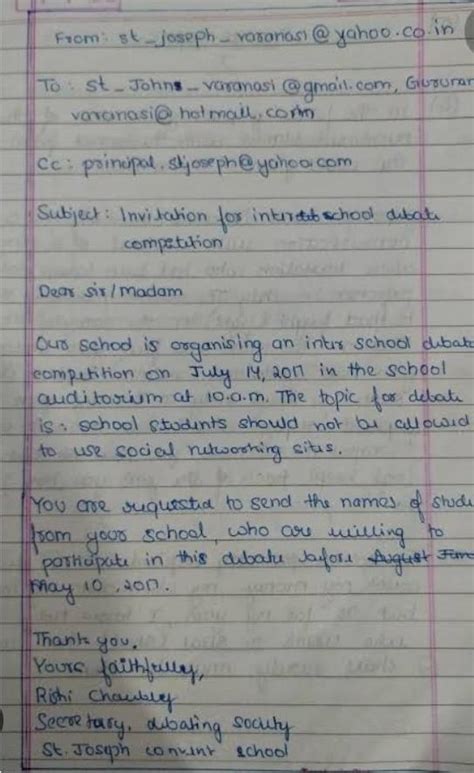 From: st_joseph_varanasi@yahoo.co.in
To: st_Johns_varanasi@gmail.com, Gurunan
varanasi@hotmail.com
Cc: principal.stjoseph@yahoo.com
Subject: Invitation for inter school debate
competition
Dear sir/madam
Our school is organising an inter school debate
competition on July 14, 2017 in the school
auditorium at 10.a.m. The topic for debate
is: school students should not be allowed
to use social networking sites.
You are requested to send the names of stude
from your school, who are willing to
participate in this debate before August June
May 10, 2017.
Thank you,
Yours faithfully,
Rishi Chaubey
Secretary, debating society
St. Joseph convent school